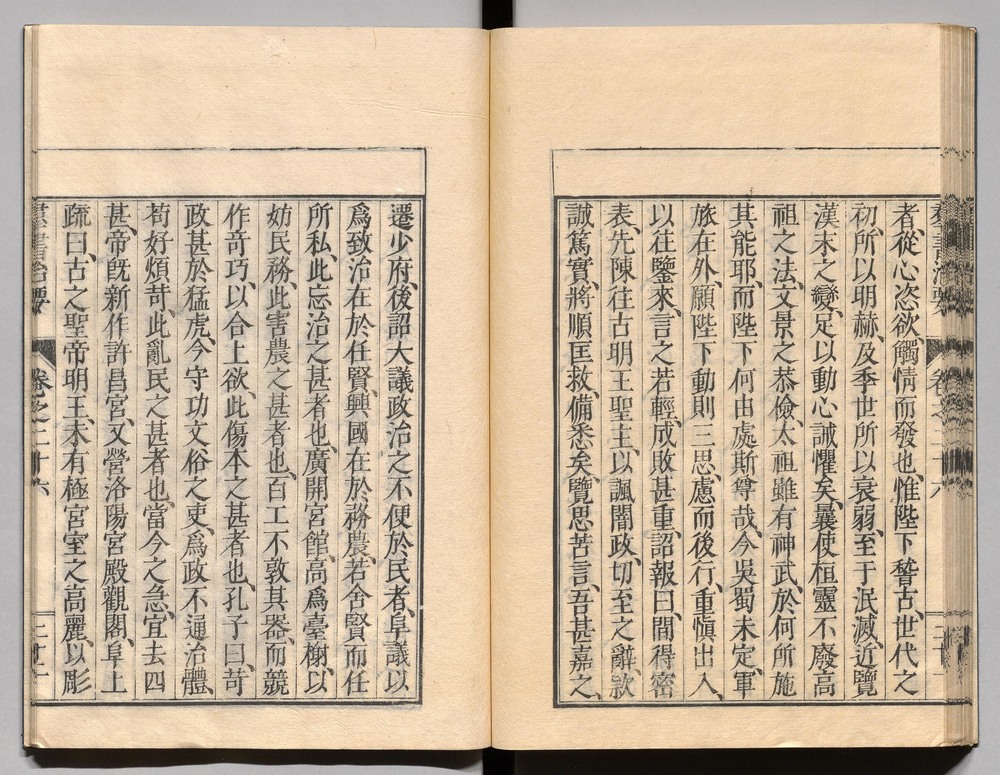 者、從心恣欲、觸情而發也、惟陛下、稽古、世代之
初所以明赫、及季世所以衰弱、至于泯滅、近覽
漢末之變、足以動心誡懼矣、曩使桓靈不廢高
祖之法、文景之恭儉、太祖雖有神武、於何所施
其能耶、而陛下何由處斯尊哉、今吳蜀未定、軍
旅在外、願陛下動則三思、慮而後行、重愼出入、
以往鑒來、言之若輕、成敗甚重、詔報曰、間得密
表、先陳往古明王聖主、以諷闇政、切至之辭、款
誠篤實、將順匡救、備悉矣、覽思苦言、吾甚嘉之、
群書治要 卷之二十六
遷少府、後詔大議政治之不便於民者、阜議以
爲致治在於任賢、興國在於務農、若舍賢而任
所私、此忘治之甚者也、廣開宮館、高爲臺榭、以
妨民務、此害農之甚者也、百工不敦其器、而競
作奇巧、以合上欲、此傷本之甚者也、孔子曰、苛
政甚於猛虎、今守功文俗之吏、爲政不通治體、
苟好煩苛、此亂民之甚者也、當今之急、宜去四
甚、帝旣新作許昌宮、又營洛陽宮殿觀閣、阜上
疏曰、古之聖帝明王、未有極宮室之高麗、以彫
群書治要 卷之二十六